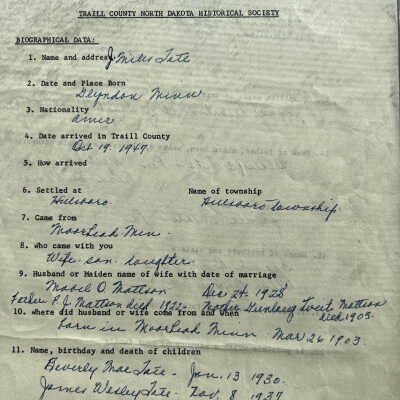 TRAILL COUNTY NORTH DAKOTA HISTORICAL SOCIETY
BIOGRAPHICAL DATA:
1. Name and address J Miles Tate
2. Date and Place Born
Glyndon Minn
3. Nationality
Amer
4. Date arrived in Traill County
Oct 19. 1947
5. How arrived
6. Settled at Name of township
Hillsboro Hillsboro Township.
7. Came from
Moorhead Minn.
8. Who came with you
Wife-son-daughter
9. Husband or Maiden name of wife with date of marriage
Mabel O Mattson Dec 24. 1928
Father P. J Mattson died 1922- Mother Mattson
died 1903.
10. where did husband or wife come from and when
born in Moorhead Minn Mar 26 1903.
11. Name, birthday and death of children
Beverly Mae Tate - Jan. 13 1930.
James Wesley Tate - Nov. 8 1937